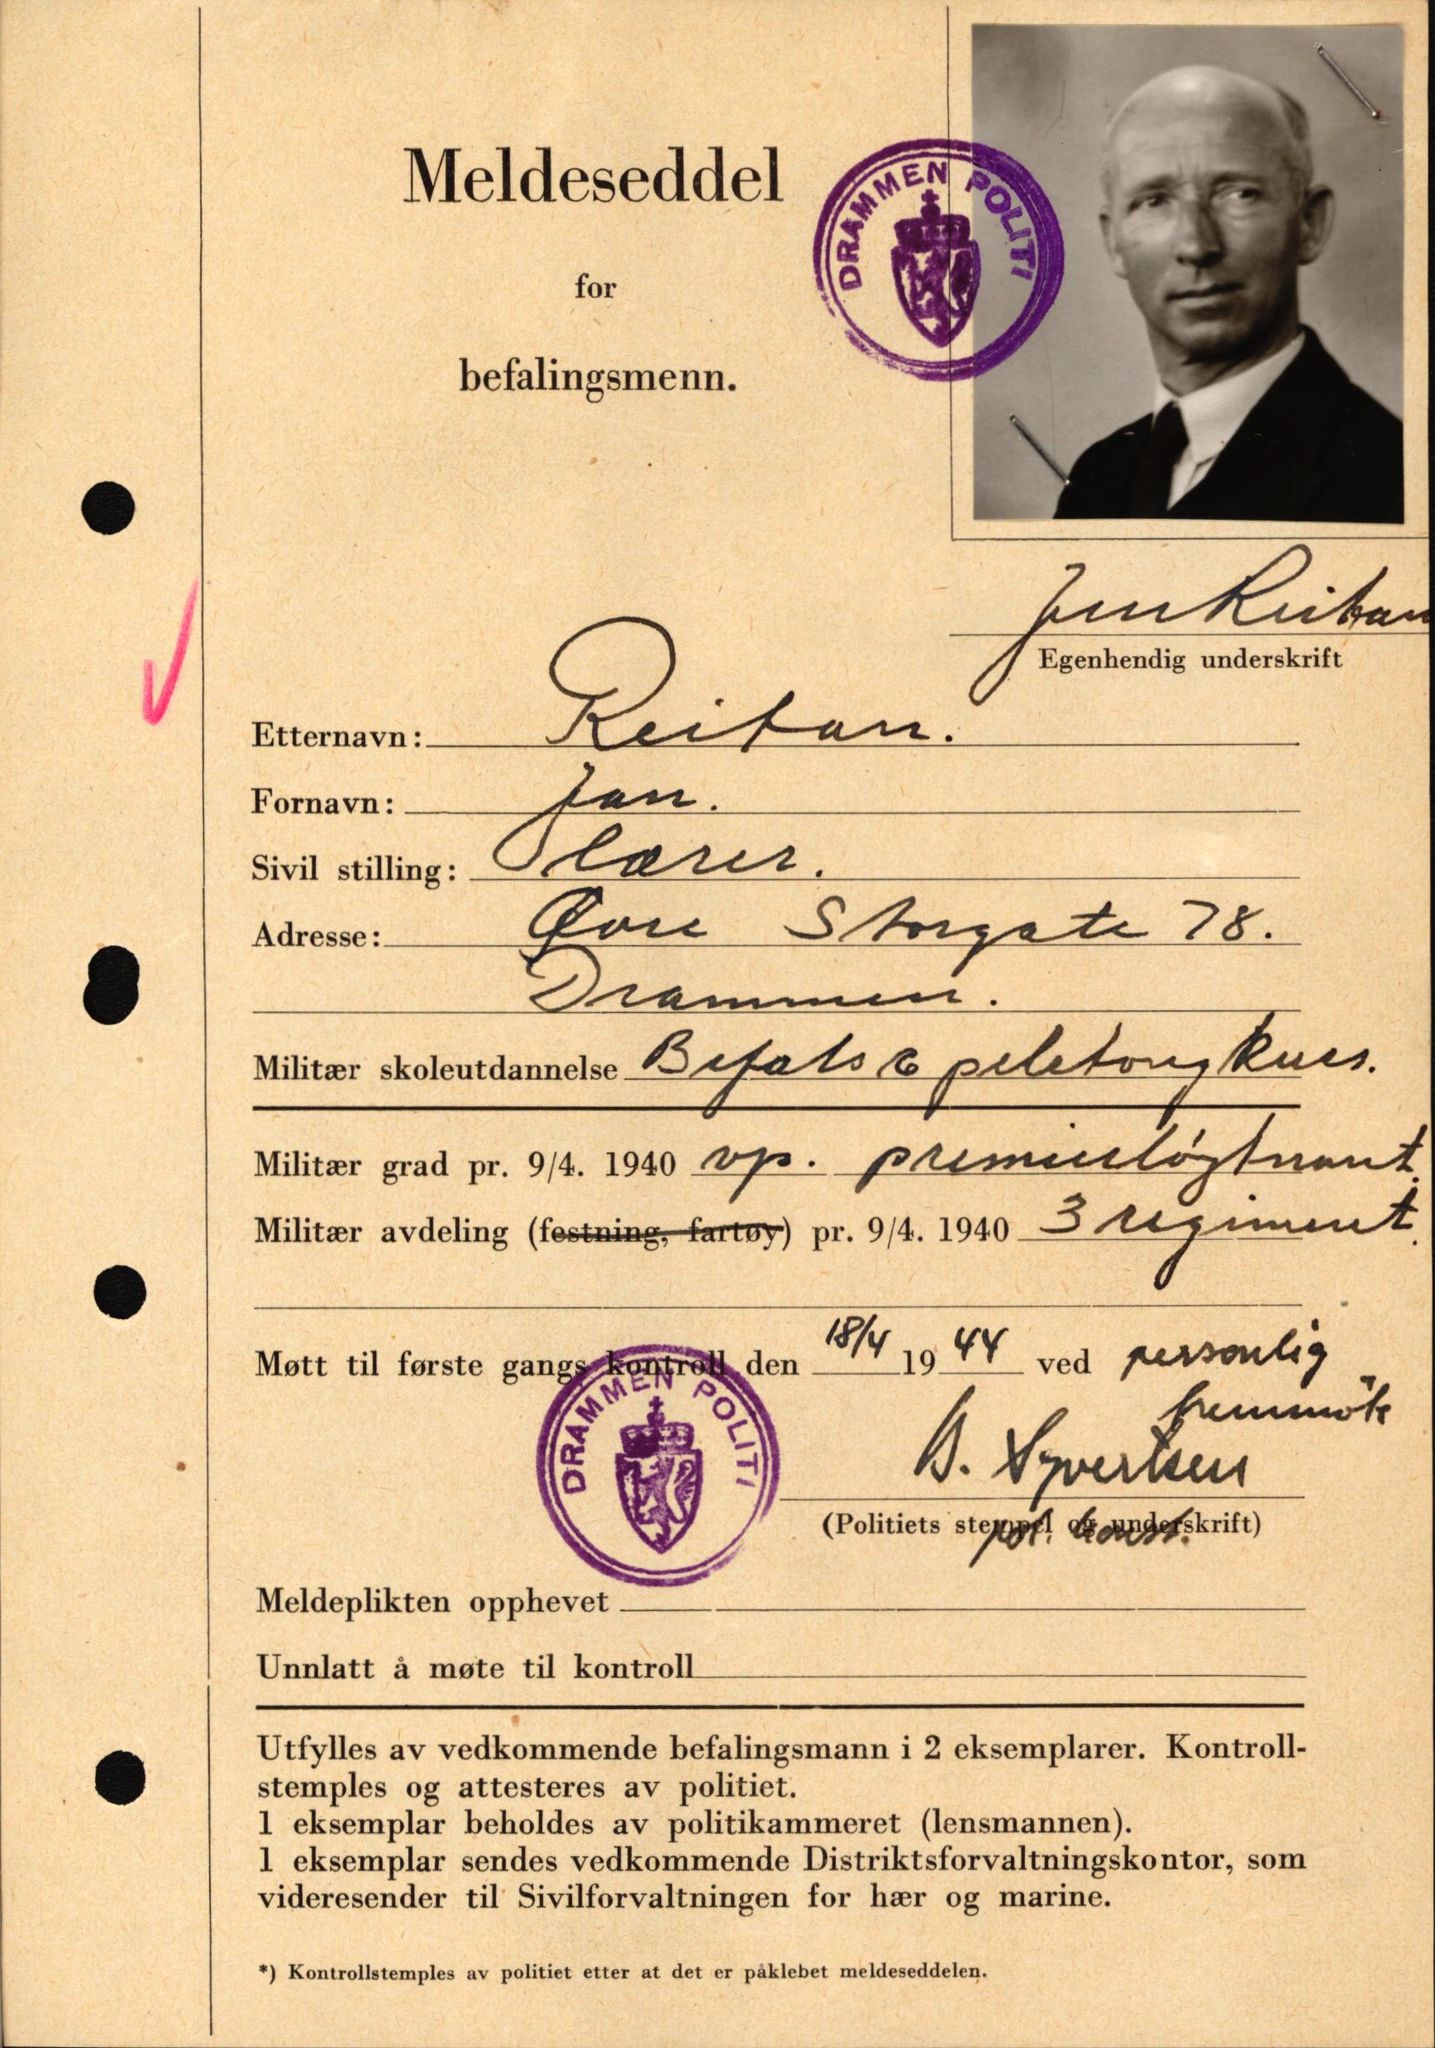 Meldeseddel
for
befalingsmenn.
DRAMMEN POLITI
Jan Reitan
Egenhendig underskrift
Etternavn: Reitan.
Fornavn: Jan.
Sivil stilling: Lærer.
Adresse: Øvre Storgate 78.
Drammen.
Militær skoleutdannelse Befals & peletongkurs.
Militær grad pr. 9/4. 1940 vp. premierløytnant.
Militær avdeling (festning, fartøy) pr. 9/4. 1940 3 regiment.
Møtt til første gangs kontroll den 18/4 1944 ved personlig
fremmöte
DRAMMEN POLITI
B. Syvertsen
(Politiets stempel og underskrift)
pol. konst.
Meldeplikten opphevet
Unnlatt å møte til kontroll
Utfylles av vedkommende befalingsmann i 2 eksemplarer. Kontroll-
stemples og attesteres av politiet.
1 eksemplar beholdes av politikammeret (lensmannen).
1 eksemplar sendes vedkommende Distriktsforvaltningskontor, som
videresender til Sivilforvaltningen for hær og marine.
*) Kontrollstemples av politiet etter at det er påklebet meldeseddelen.